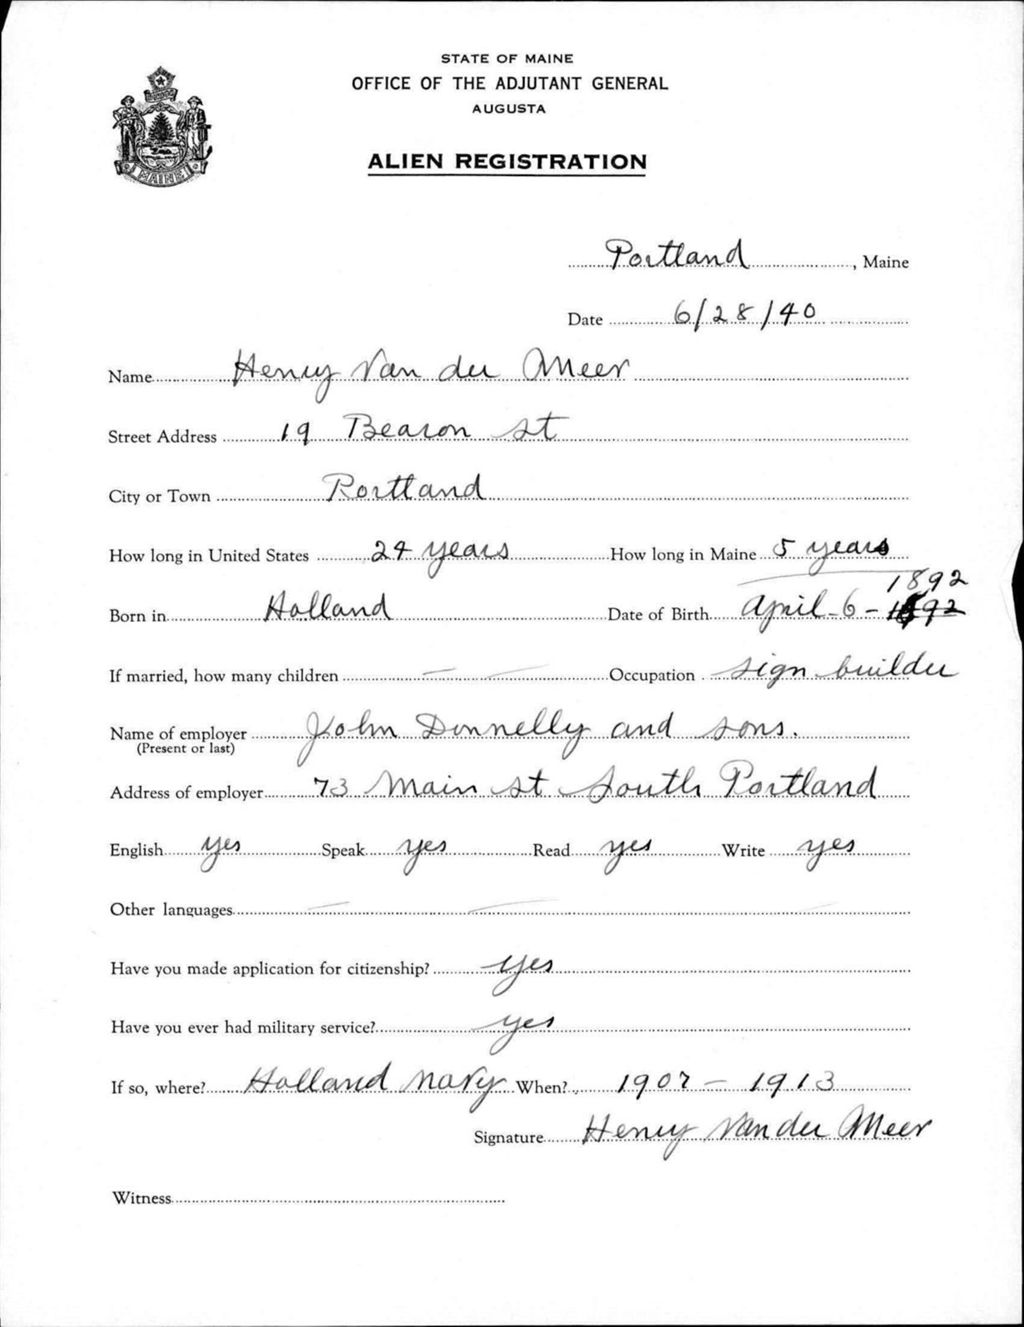 STATE OF MAINE
OFFICE OF THE ADJUTANT GENERAL
AUGUSTA
MAINE
ALIEN REGISTRATION
Portland, Maine
Date 6/28/40
Name Henry Van der Meer
Street Address 19 Beacon st
City or Town Portland
How long in United States 24 years How long in Maine 5 years
1892
Born in Holland Date of Birth April-6-
If married, how many children — — Occupation sign builder
Name of employer John Donnelly and sons.
(Present or last)
Address of employer 73 Main st South Portland
English yes Speak yes Read yes Write yes
Other languages — — —
Have you made application for citizenship? yes
Have you ever had military service? yes
If so, where? Holland navy When? 1907 - 1913
Signature Henry Van der Meer
Witness